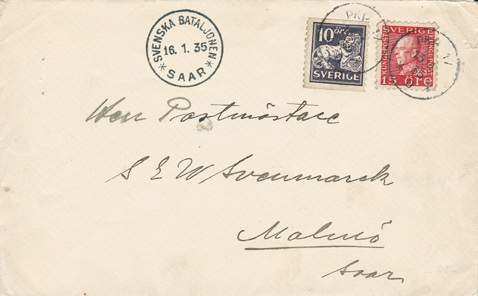 SVENSKA BATALJONEN
16.1.35
* SAAR *
10 ÖRE
SVERIGE
SVERIGE
15 ÖRE
Herr Postmästare
S E W Svenmarck
Malmö
Saar